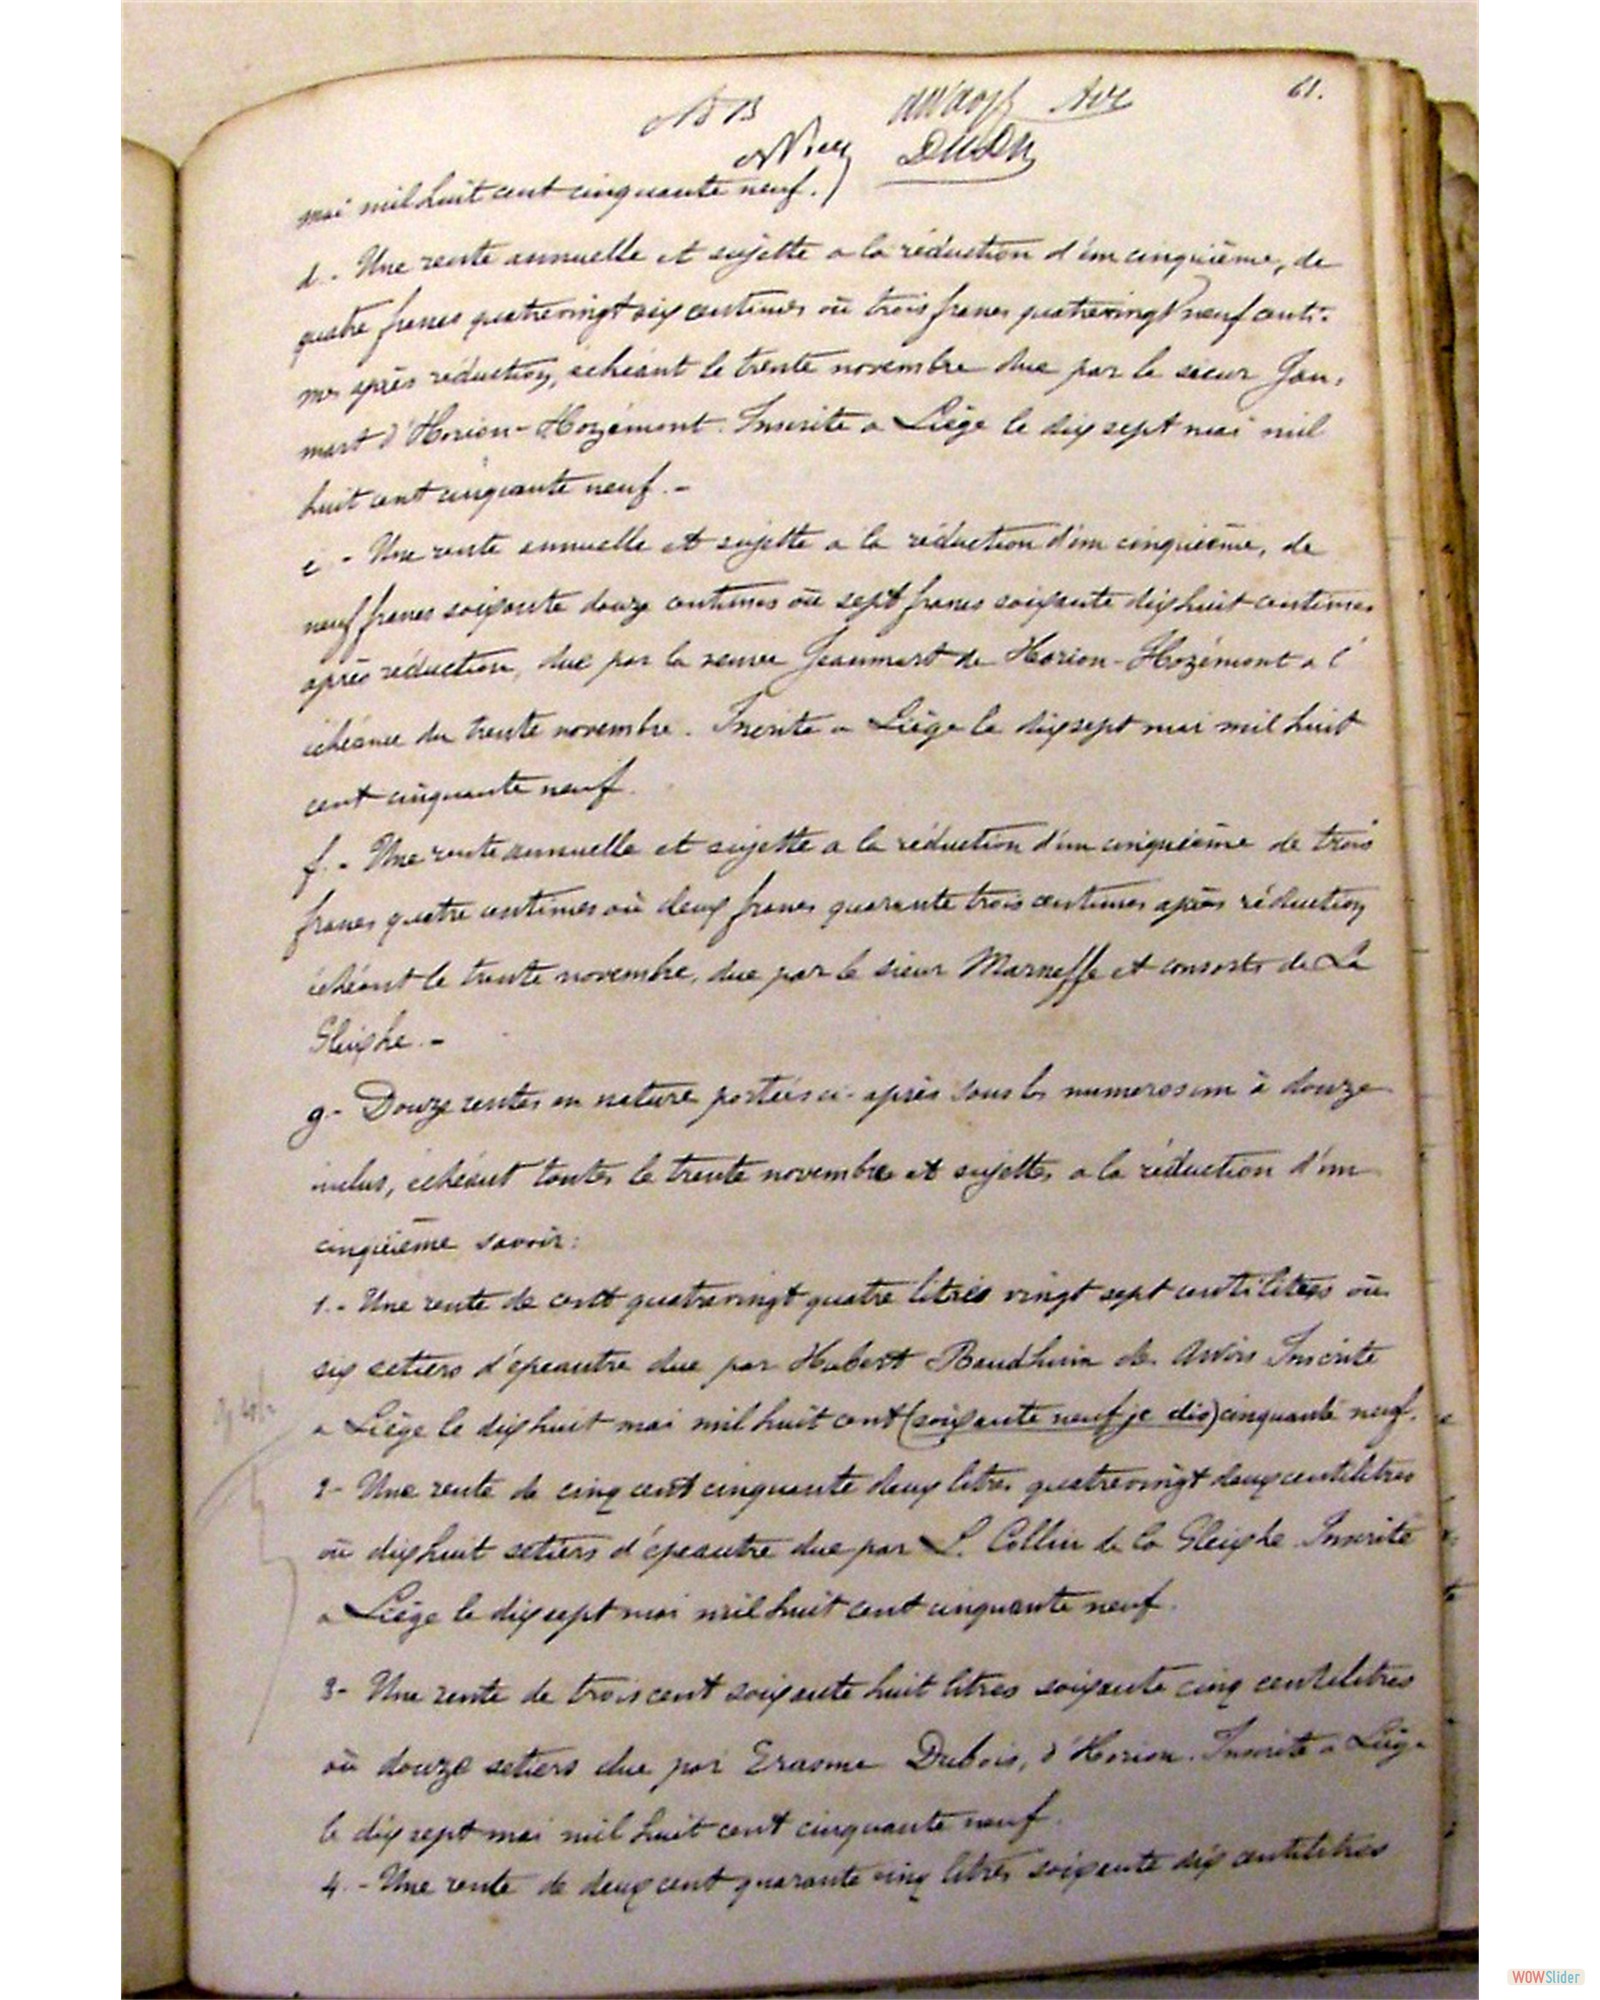 61.
mai mil huit cent cinquante neuf.
d. - Une rente annuelle et sujette a la réduction d'un cinquième, de
quatre francs quatrevingt six centimes ou trois francs quatrevingt neuf centi-
mes après réduction, echéant le trente novembre due par le sieur Jau-
mart d'Horion-Hozémont. Inscrite a Liège le dix sept mai mil
huit cent cinquante neuf. -
e - Une rente annuelle et sujette a la réduction d'un cinquième, de
neuf francs soixante douze centimes ou sept francs soixante dix huit centimes
après réduction, due par la veuve Jeaumart de Horion-Hozémont a l'
échéance du trente novembre. Inscrite a Liège le dix sept mai mil huit
cent cinquante neuf.
f. - Une rente annuelle et sujette a la réduction d'un cinquième de trois
francs quatre centimes ou deux francs quarante trois centimes après réduction
échéant le trente novembre, due par le sieur Marneffe et consorts de La
Gleixhe. -
g - Douze rentes en nature portées ci-après sous les numeros un à douze
inclus, echéant toutes le trente novembre et sujettes a la réduction d'un
cinquième savoir:
1. - Une rente de cent quatrevingt quatre litres vingt sept centilitres ou
six setiers d'épeautre due par Hubert Baudhuin de Awirs Inscrite
a Liège le dix huit mai mil huit cent (soixante neuf je dis) cinquante neuf.
2 - Une rente de cinq cent cinquante deux litres quatrevingt deux centilitres
ou dix huit setiers d'épeautre due par L. Collin de la Gleixhe Inscrite
a Liège le dix sept mai mil huit cent cinquante neuf.
3 - Une rente de trois cent soixante huit litres soixante cinq centilitres
ou douze setiers due par Erasme Dubois, d'Horion. Inscrite a Liège
le dix sept mai mil huit cent cinquante neuf.
4. - Une rente de deux cent quarante cinq litres soixante dix centilitres
WOWSlider